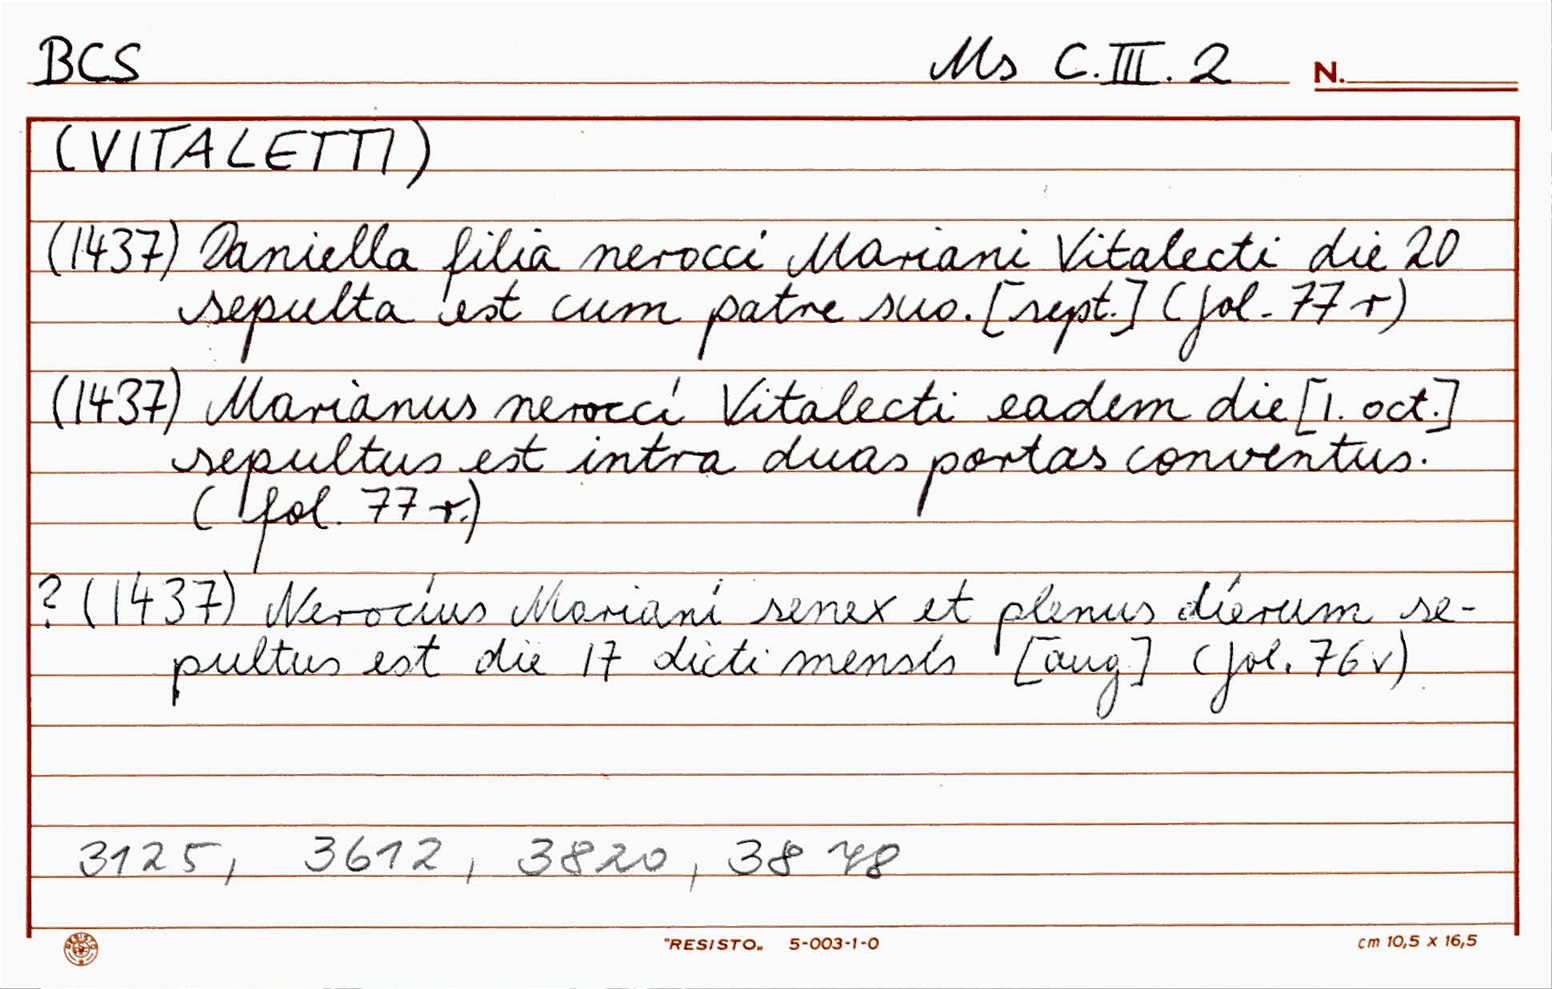 BCS Ms C.III.2 N.
(VITALETTI)
(1437) Daniella filia nerocci Mariani Vitalecti die 20
sepulta est cum patre suo. [sept.] (fol. 77 r)
(1437) Marianus nerocci Vitalecti eadem die [1. oct.]
sepultus est intra duas portas conventus.
(fol. 77 r.)
? (1437) Nerocius Mariani senex et plenus dierum se-
pultus est die 17 dicti mensis [aug.] (fol. 76v)
3125, 3612, 3820, 3878
RESISTO
"RESISTO„ 5-003-1-0 cm 10,5 x 16,5